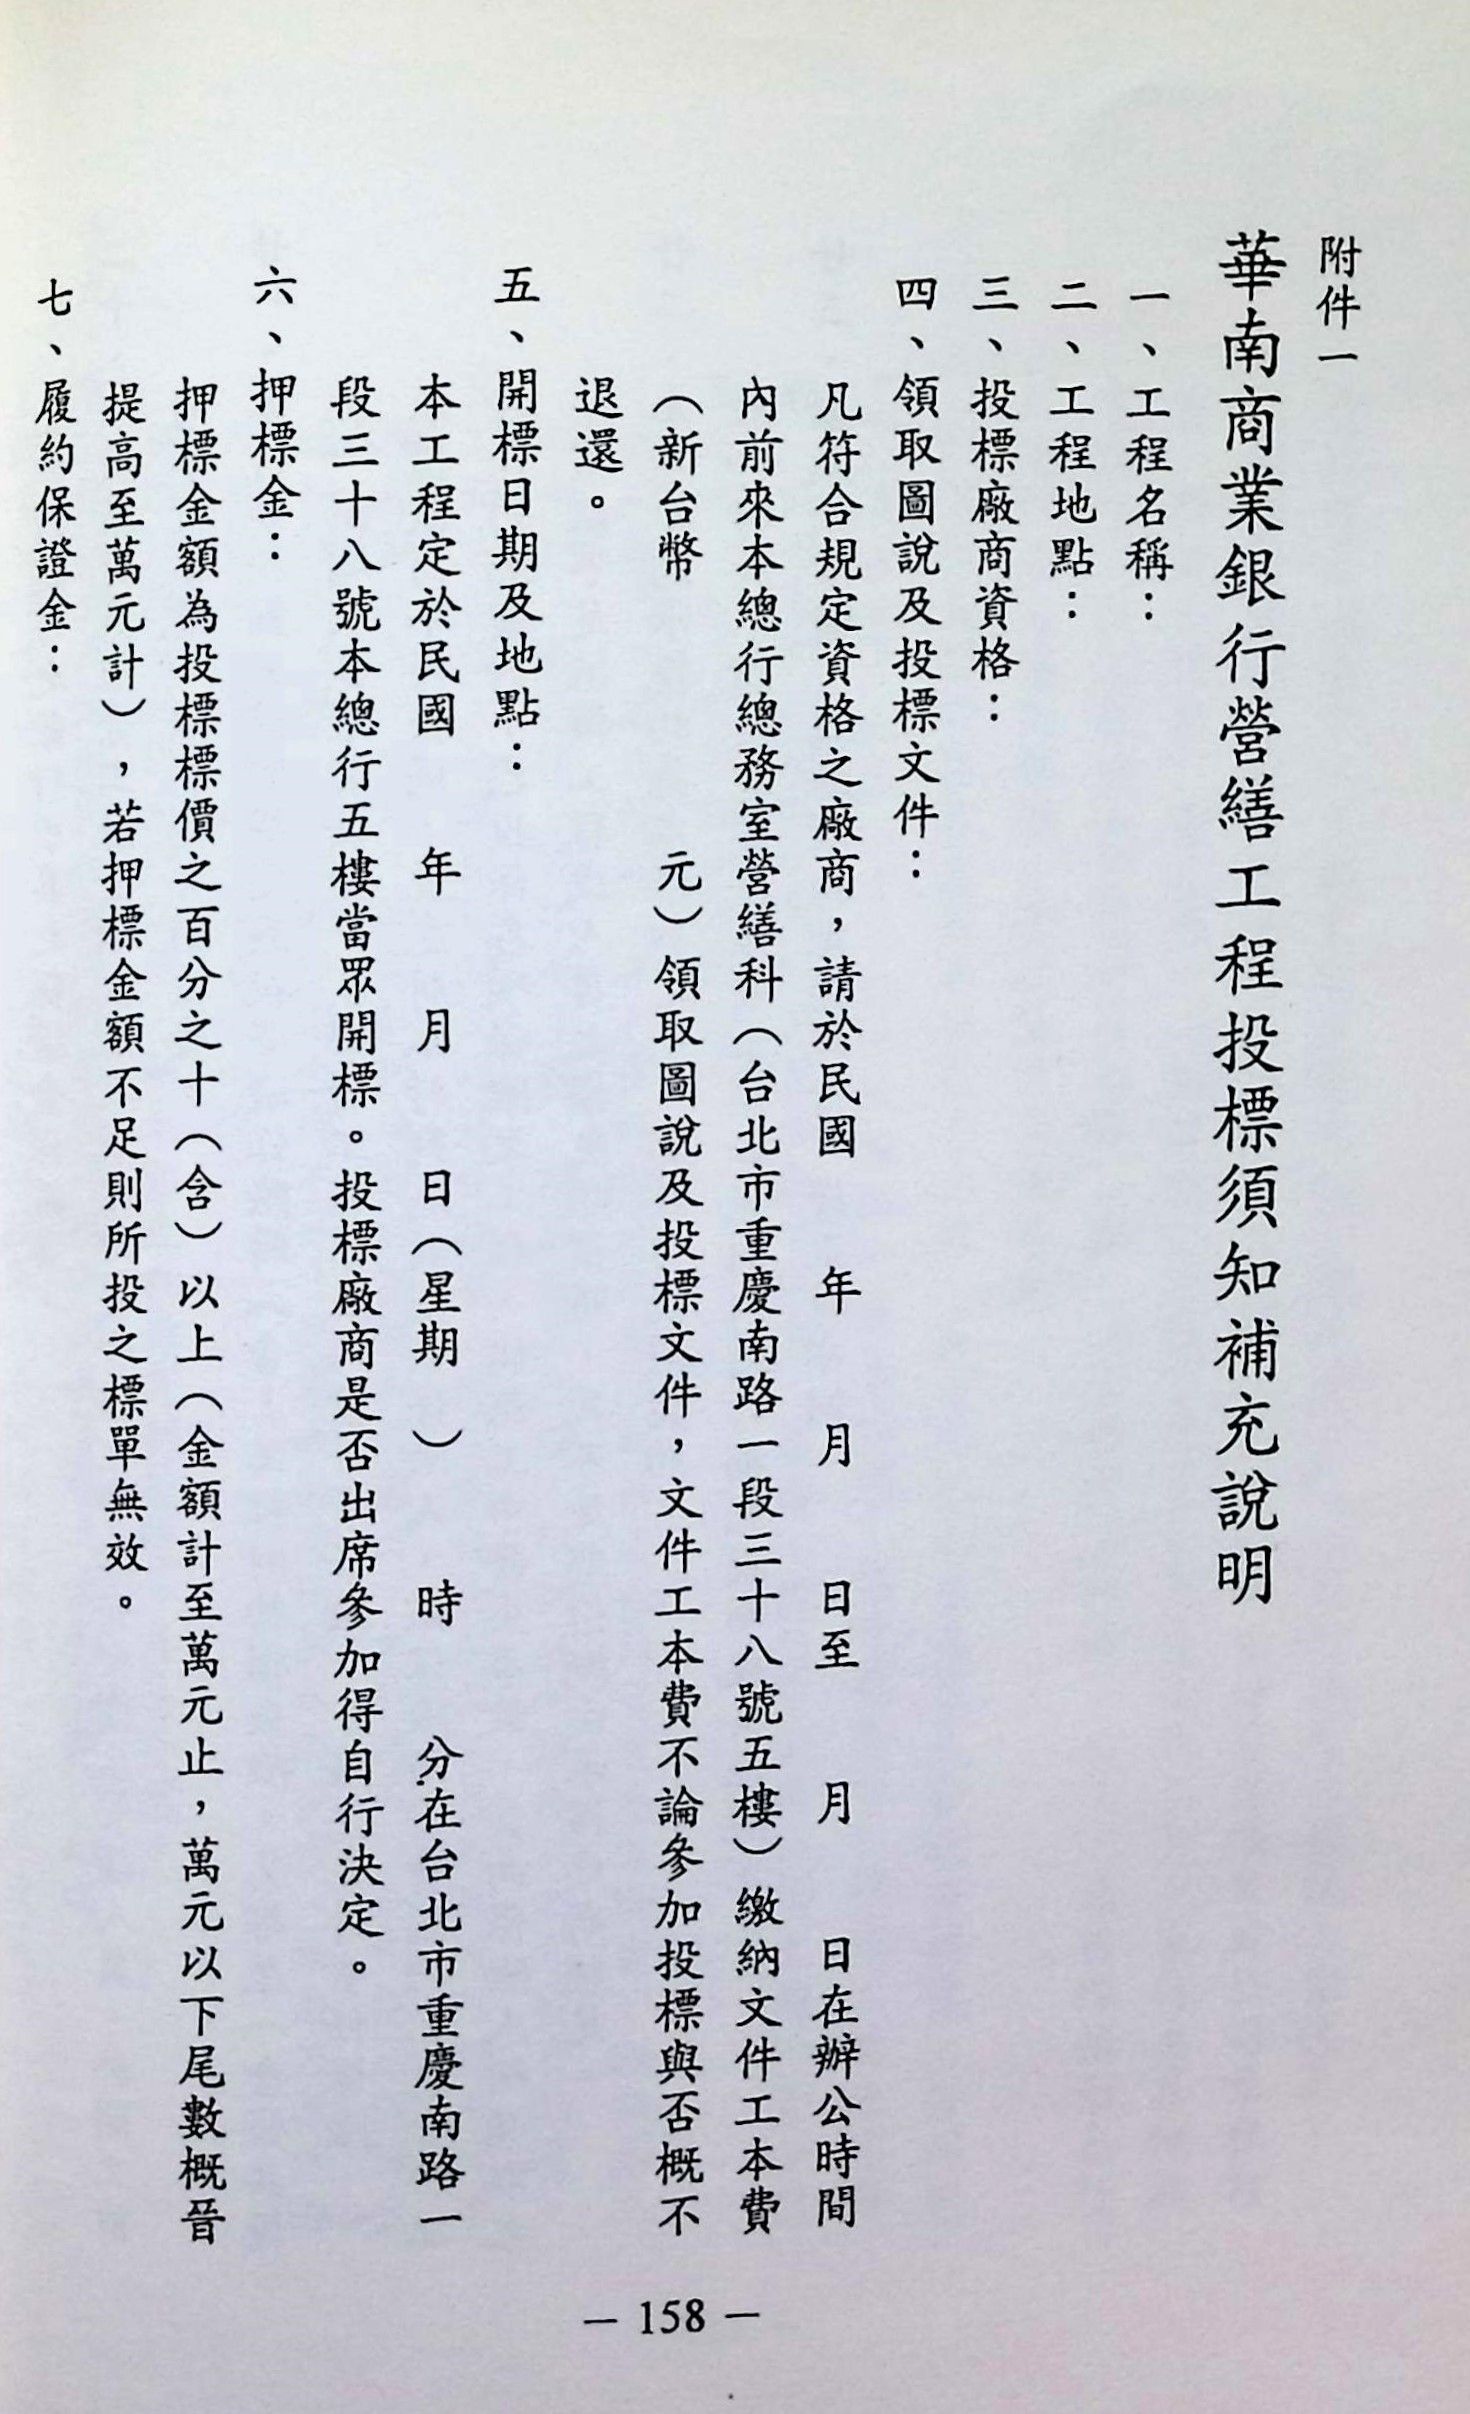 附件一
華南商業銀行營繕工程投標須知補充說明
一、工程名稱：
二、工程地點：
三、投標廠商資格：
四、領取圖說及投標文件：
凡符合規定資格之廠商，請於民國　　年　　月　　日至　　月　　日在辦公時間
內前來本總行總務室營繕科（台北市重慶南路一段三十八號五樓）繳納文件工本費
（新台幣　　　　　元）領取圖說及投標文件，文件工本費不論參加投標與否概不
退還。
五、開標日期及地點：
本工程定於民國　　年　　月　　日（星期　）　　時　　分在台北市重慶南路一
段三十八號本總行五樓當眾開標。投標廠商是否出席參加得自行決定。
六、押標金：
押標金額為投標標價之百分之十（含）以上（金額計至萬元止，萬元以下尾數概晉
提高至萬元計），若押標金額不足則所投之標單無效。
七、履約保證金：
— 158 —